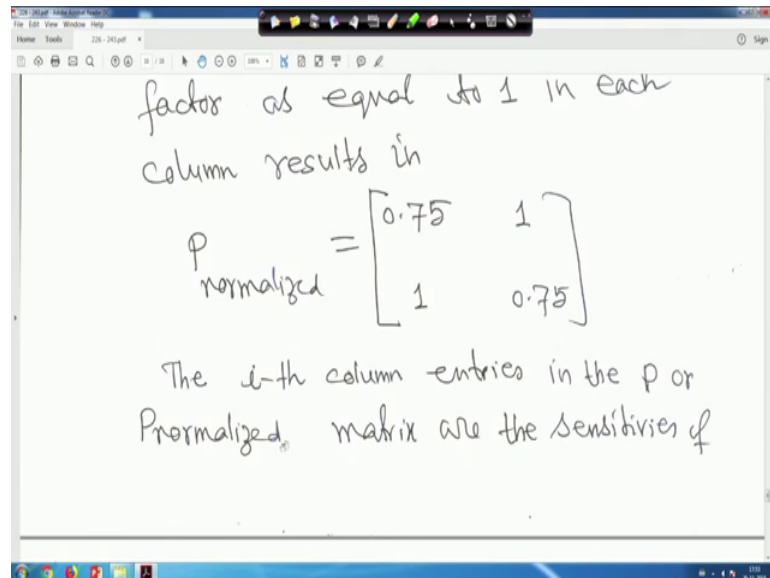 226 - 243.pdf - Adobe Acrobat Reader DC
File Edit View Window Help
Home Tools 226 - 243.pdf × Sign
factor as equal to 1 in each
column results in
P normalized = [0.75 1
1 0.75]
The i-th column entries in the P or
Pnormalized matrix are the sensitivies of
17:53